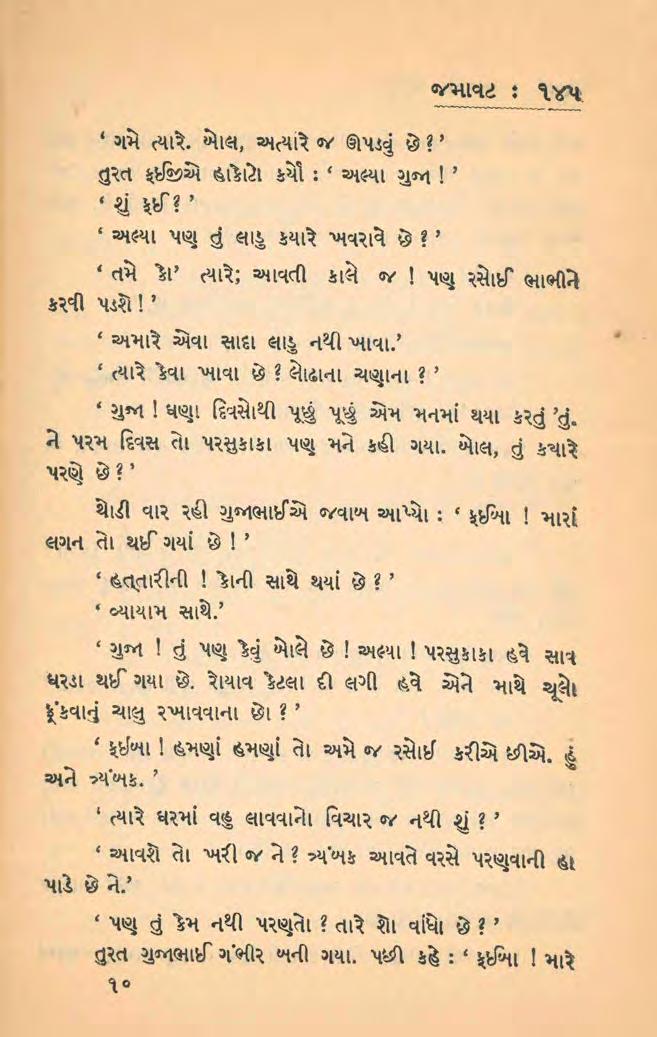 જમાવટ : ૧૪૫
‘ ગમે ત્યારે. બોલ, અત્યારે જ ઊપડવું છે ? ’
તુરત ફઈજીએ હાકોટો કર્યો : ‘ અલ્યા ગુજા ! ’
‘ શું ફઈ ? ’
‘ અલ્યા પણ તું લાડુ કયારે ખવરાવે છે ? ’
‘ તમે કો’ ત્યારે; આવતી કાલે જ ! પણ રસોઈ ભાભીને
કરવી પડશે ! ’
‘ અમારે એવા સાદા લાડુ નથી ખાવા.’
‘ ત્યારે કેવા ખાવા છે ? લોઢાના ચણાના ? ’
‘ ગુજા ! ઘણા દિવસોથી પૂછું પૂછું એમ મનમાં થયા કરતું ’તું.
ને પરમ દિવસ તો પરસુકાકા પણ મને કહી ગયા. બોલ, તું કયારે
પરણે છે ? ’
થોડી વાર રહી ગુજાભાઈએ જવાબ આપ્યો : ‘ ફઈબા ! મારાં
લગન તો થઈ ગયાં છે ! ’
‘ હત્‌તારીની ! કોની સાથે થયાં છે ? ’
‘ વ્યાયામ સાથે.’
‘ ગુજા ! તું પણ કેવું બોલે છે ! અલ્યા ! પરસુકાકા હવે સાવ
ઘરડા થઈ ગયા છે. રોયાવ કેટલા દી લગી હવે એને માથે ચૂલો
ફૂંકવાનું ચાલુ રખાવવાના છો ? ’
‘ ફઇબા ! હમણાં હમણાં તો અમે જ રસોઈ કરીએ છીએ. હું
અને ત્ર્યંબક. ’
‘ ત્યારે ઘરમાં વહુ લાવવાનો વિચાર જ નથી શું ? ’
‘ આવશે તો ખરી જ ને ? ત્ર્યંબક આવતે વરસે પરણવાની હા
પાડે છે ને.’
‘ પણ તું કેમ નથી પરણતો ? તારે શો વાંધો છે ? ’
તુરત ગુજાભાઈ ગંભીર બની ગયા. પછી કહે : ‘ ફઈબા ! મારે
૧૦